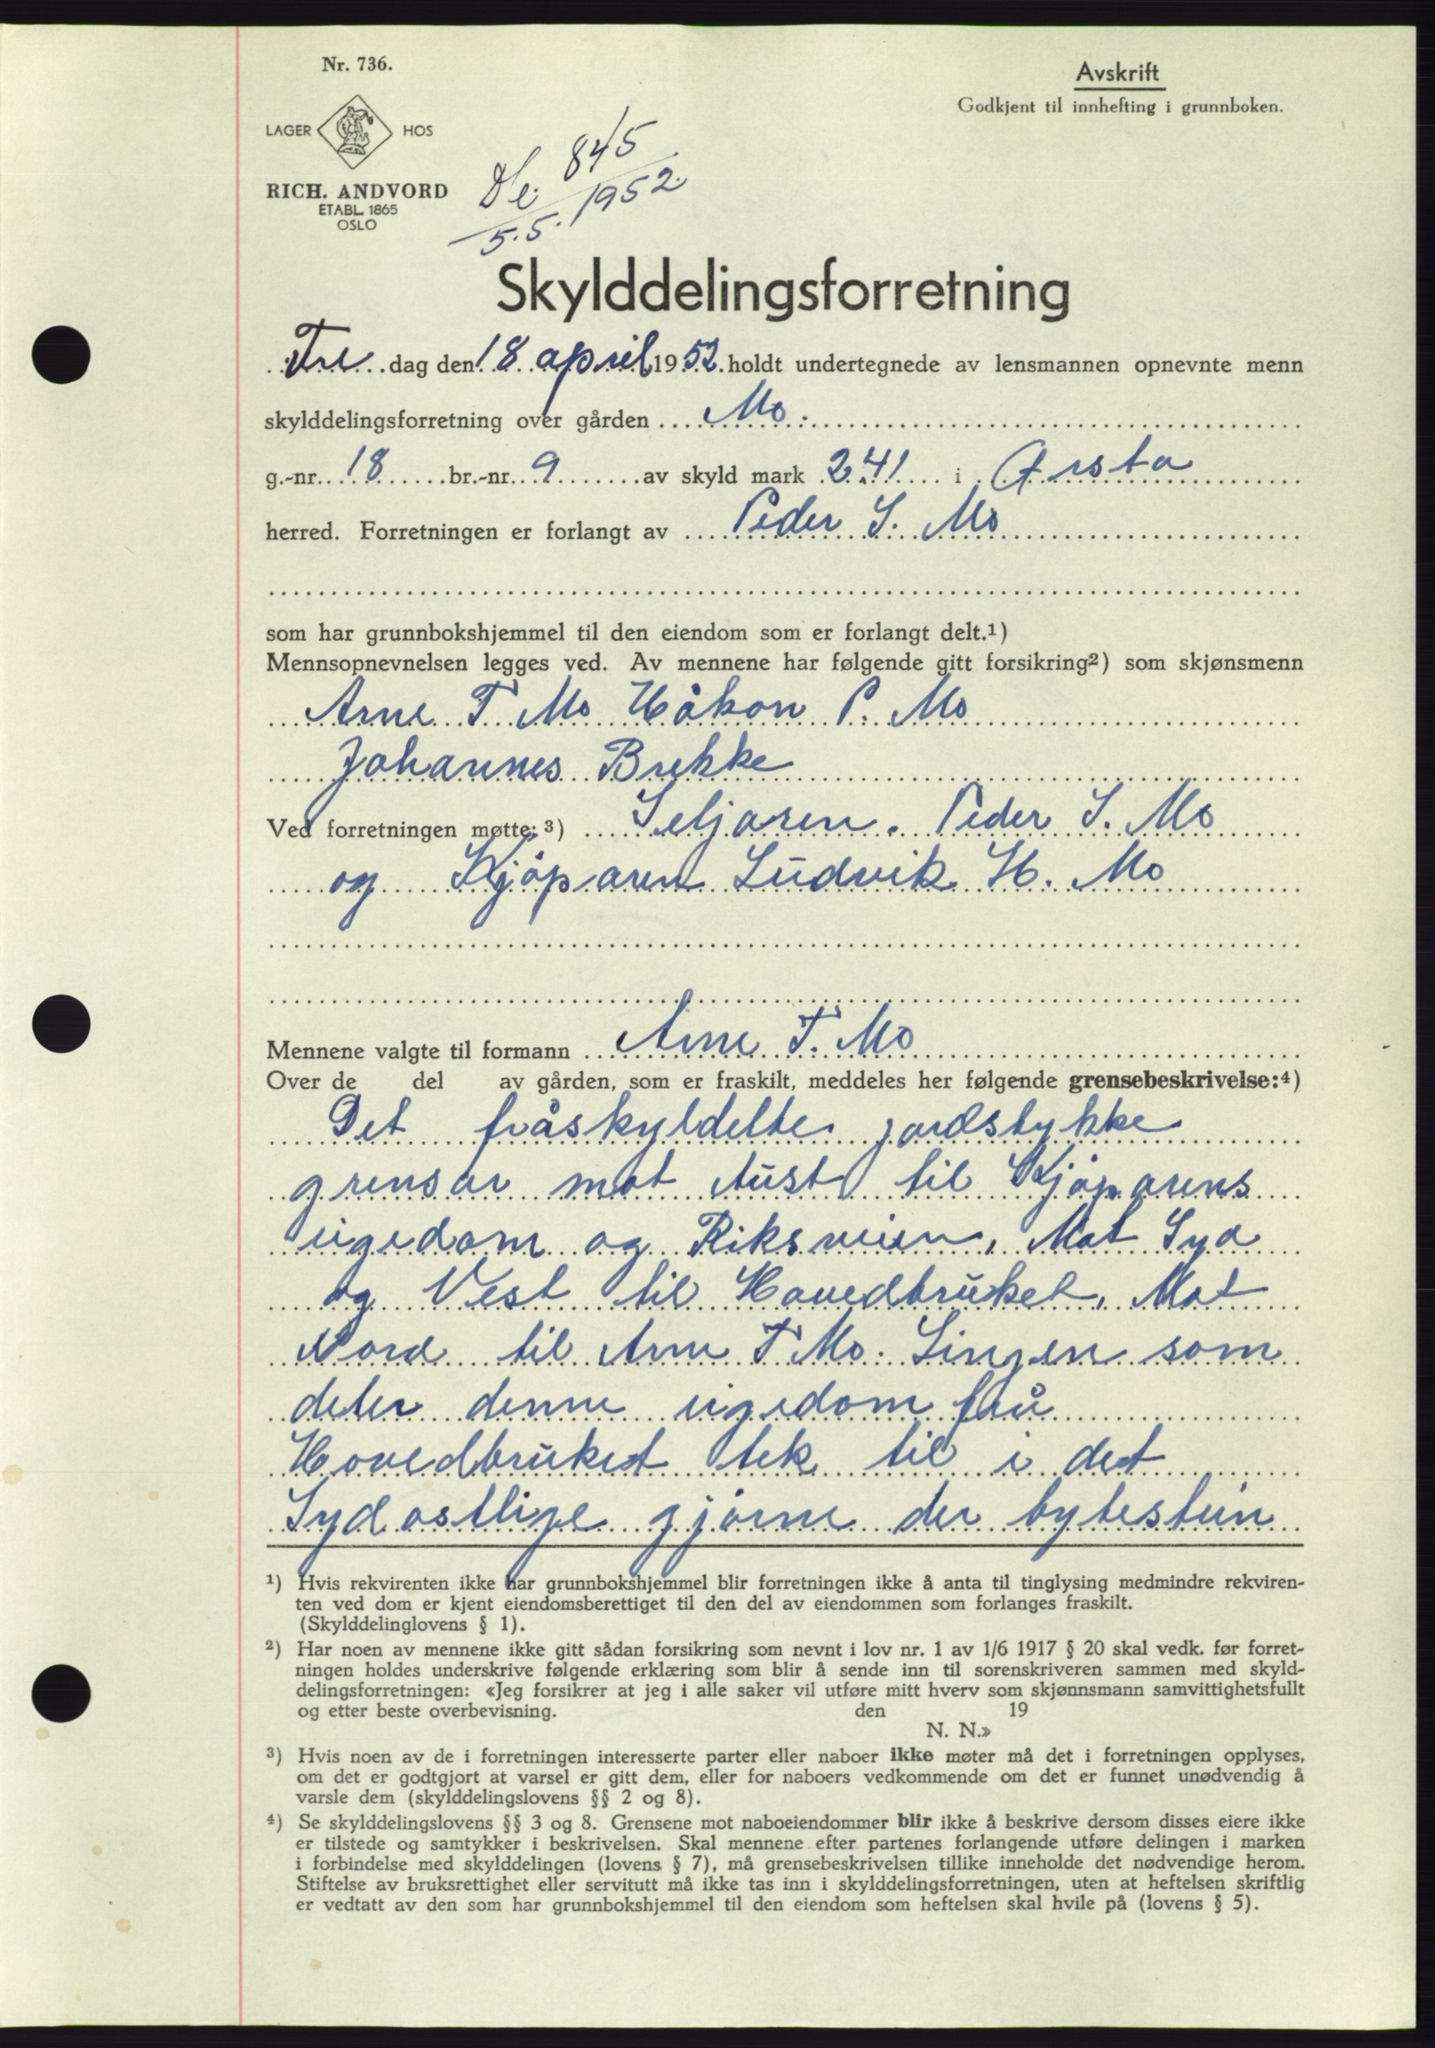 Nr. 736.
Avskrift
Godkjent til innhefting i grunnboken.
LAGER HOS
RICH. ANDVORD
ETABL. 1865
OSLO
845
5.5. 1952.
Skylddelingsforretning
Fre dag den 18 april 1952 holdt undertegnede av lensmannen opnevnte menn
skylddelingsforretning over gården Mo.
g.-nr. 18 br.-nr. 9 av skyld mark 2.41 i Ørsta
herred. Forretningen er forlangt av Peder S. Mo
som har grunnbokshjemmel til den eiendom som er forlangt delt.1)
Mennsopnevnelsen legges ved. Av mennene har følgende gitt forsikring2) som skjønsmenn
Arne T Mo Håkon P. Mo
Johannes Brekke
Ved forretningen møtte: 3) Seljaren. Peder S. Mo
og Kjöparen Ludvik H. Mo
Mennene valgte til formann Arne T. Mo
Over de del av gården, som er fraskilt, meddeles her følgende grensebeskrivelse:4)
Det fråskyldelte jordstykke
grensar mot Aust til Kjöparens
eigedom og Riksveien, Mot Syd
og Vest til Hovedbruket. Mot
Nord til Arne T Mo. Linjen som
deler denne eigedom frå
Hovedbruket tek til i det
Sydostlige hjörne der bytestein
1) Hvis rekvirenten ikke har grunnbokshjemmel blir forretningen ikke å anta til tinglysing medmindre rekviren-
ten ved dom er kjent eiendomsberettiget til den del av eiendommen som forlanges fraskilt.
(Skylddelinglovens § 1).
2) Har noen av mennene ikke gitt sådan forsikring som nevnt i lov nr. 1 av 1/6 1917 § 20 skal vedk. før forret-
ningen holdes underskrive følgende erklæring som blir å sende inn til sorenskriveren sammen med skyld-
delingsforretningen: «Jeg forsikrer at jeg i alle saker vil utføre mitt hverv som skjønnsmann samvittighetsfullt
og etter beste overbevisning. den 19
N. N.»
3) Hvis noen av de i forretningen interesserte parter eller naboer ikke møter må det i forretningen opplyses,
om det er godtgjort at varsel er gitt dem, eller for naboers vedkommende om det er funnet unødvendig å
varsle dem (skylddelingslovens §§ 2 og 8).
4) Se skylddelingslovens §§ 3 og 8. Grensene mot naboeiendommer blir ikke å beskrive dersom disses eiere ikke
er tilstede og samtykker i beskrivelsen. Skal mennene efter partenes forlangende utføre delingen i marken
i forbindelse med skylddelingen (lovens § 7), må grensebeskrivelsen tillike inneholde det nødvendige herom.
Stiftelse av bruksrettighet eller servitutt må ikke tas inn i skylddelingsforretningen, uten at heftelsen skriftlig
er vedtatt av den som har grunnbokshjemmel til den eiendom som heftelsen skal hvile på (lovens § 5).